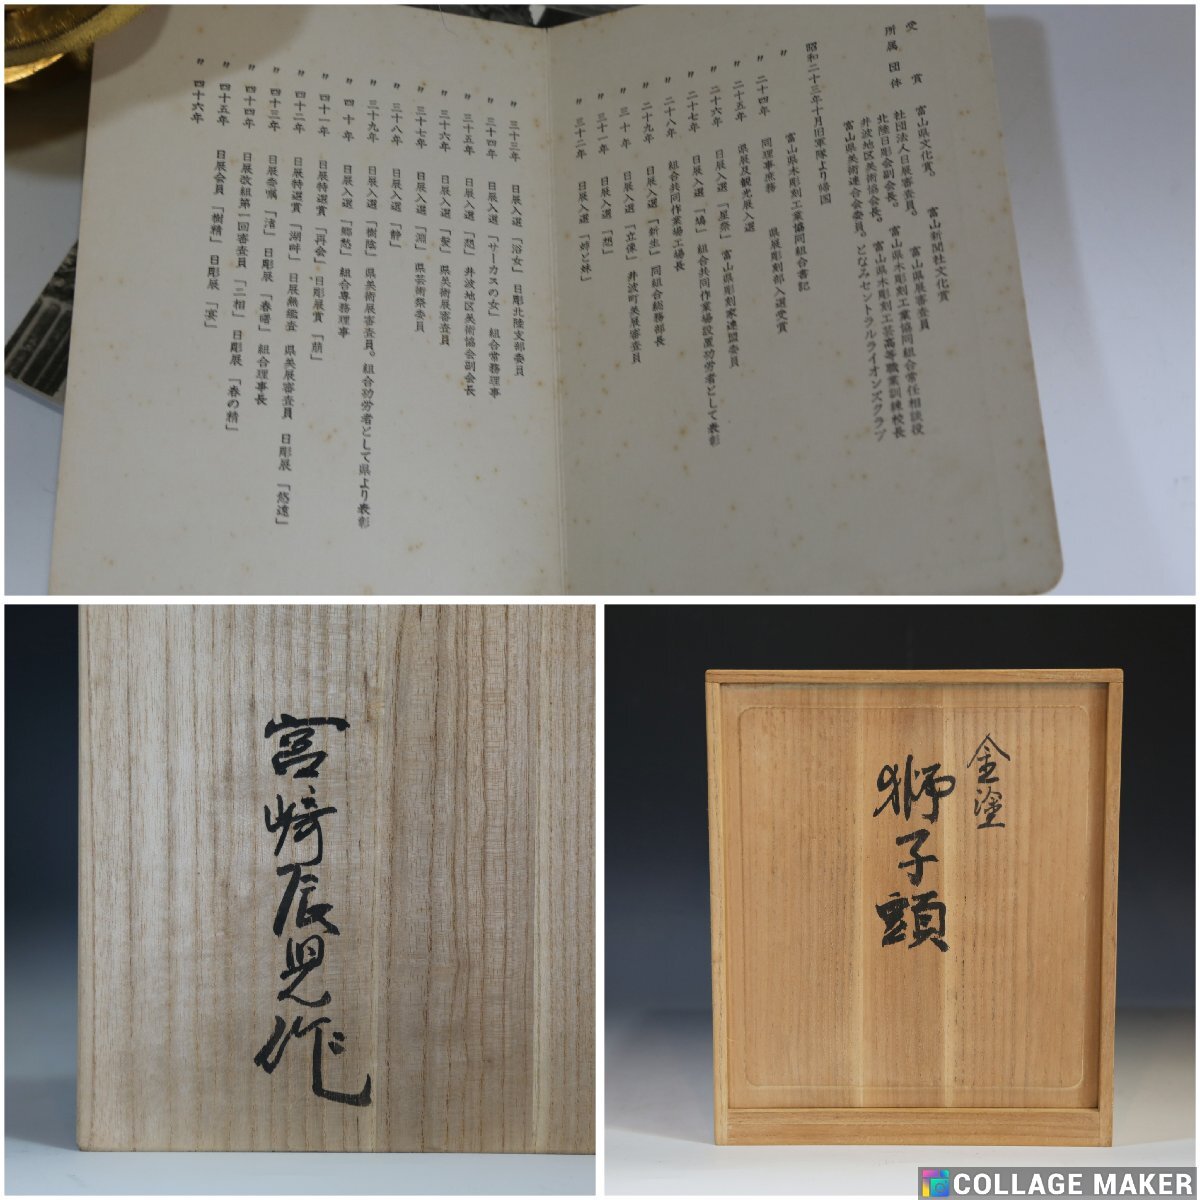 受賞　富山県文化賞。　富山新聞社文化賞
所属団体　社団法人日展審査員。　富山県展審査員
北陸日彫会副会長。　富山県木彫刻工業協同組合常任相談役
井波地区美術協会長。　富山県木彫刻工芸高等職業訓練校長
富山県美術連合会委員。となみセントラルライオンズクラブ
昭和二十三年十月旧軍隊より帰国
富山県木彫刻工業協同組合書記
〃 二十四年　同理事庶務　県展彫刻部入選受賞
〃 二十五年　県展及観光展入選
〃 二十六年　日展入選「星祭」富山県彫刻家連盟委員
〃 二十七年　日展入選「鳩」組合共同作業場設置功労者として表彰
〃 二十八年　組合共同作業場工場長
〃 二十九年　日展入選「新生」同組合総務部長
〃 三十年　日展入選「立像」井波町美展審査員
〃 三十一年　日展入選「想」
〃 三十二年　日展入選「姉と妹」
〃 三十三年　日展入選「浴女」日彫北陸支部委員
〃 三十四年　日展入選「サーカスの女」組合常務理事
〃 三十五年　日展入選「想」井波地区美術協会副会長
〃 三十六年　日展入選「髪」県美術展審査員
〃 三十七年　日展入選「淵」県芸術祭委員
〃 三十八年　日展入選「静」
〃 三十九年　日展入選「樹陰」県美術展審査員。組合功労者として県より表彰
〃 四十年　日展入選「郷愁」組合専務理事
〃 四十一年　日展特選賞「再会」日彫展賞「萠」
〃 四十二年　日展特選賞「湖畔」日展無鑑査　県美展審査員　日彫展「悠遠」
〃 四十三年　日展委嘱「渚」日彫展「春曙」組合理事長
〃 四十四年　日展改組第一回審査員「三相」日彫展「春の精」
〃 四十五年　日展会員「樹精」日彫展「宴」
〃 四十六年
宮崎辰児作
金塗
獅子頭
COLLAGE MAKER